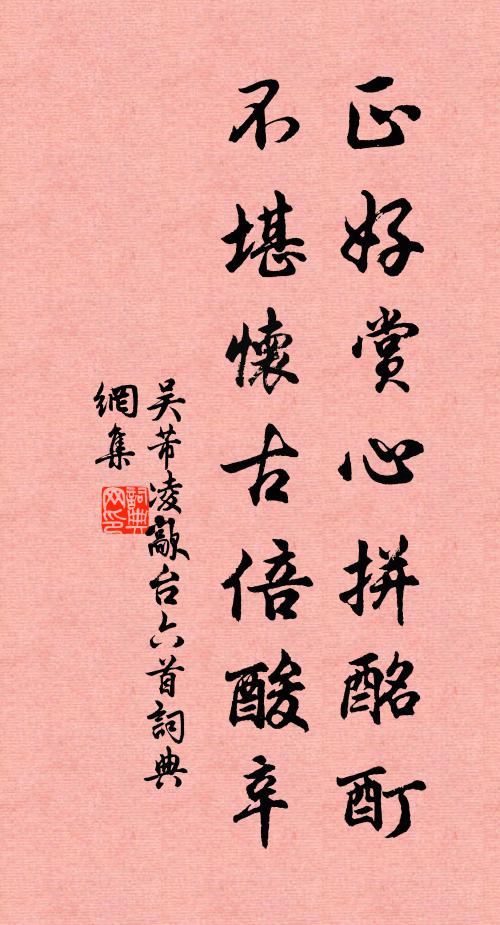 正好賞心拼酩酊
不堪懷古倍酸辛
吴芾凌歊台六首詞典
網集
詞典
网印